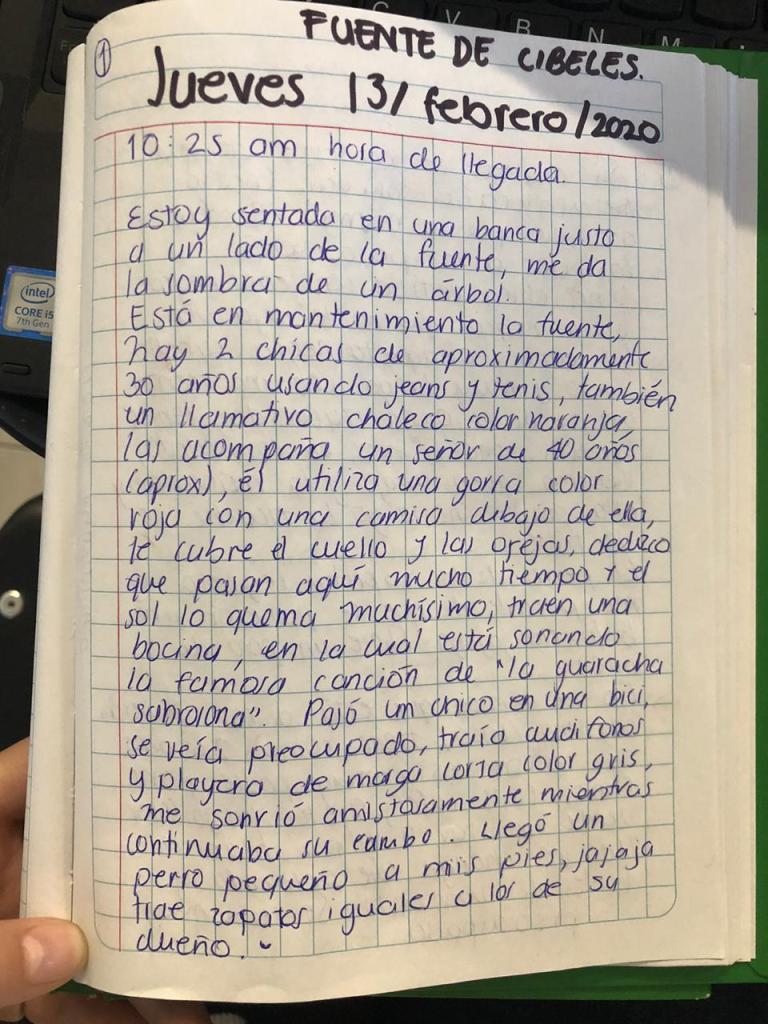 C V B N M
FUENTE DE CIBELES.
1
Jueves 13/febrero/2020
10:25 am hora de llegada.
Estoy sentada en una banca justo
a un lado de la fuente, me da
la sombra de un árbol.
Está en mantenimiento la fuente,
hay 2 chicas de aproximadamente
30 años usando jeans y tenis, también
un llamativo chaleco color naranja,
las acompaña un señor de 40 años
(aprox), él utiliza una gorra color
roja con una camisa debajo de ella,
le cubre el cuello y las orejas, deduzco
que pasan aquí mucho tiempo y el
sol lo quema muchísimo, traen una
bocina, en la cual está sonando
la famosa canción de "la guaracha
sabrosona". Pasó un chico en una bici,
se veía preocupado, traía audifonos
y playera de maga corta color gris,
me sonrió amistosamente mientras
continuaba su rumbo. Llegó un
perro pequeño a mis pies, jajaja
trae zapatos iguales a los de su
dueño.
intel
CORE i5
7th Gen